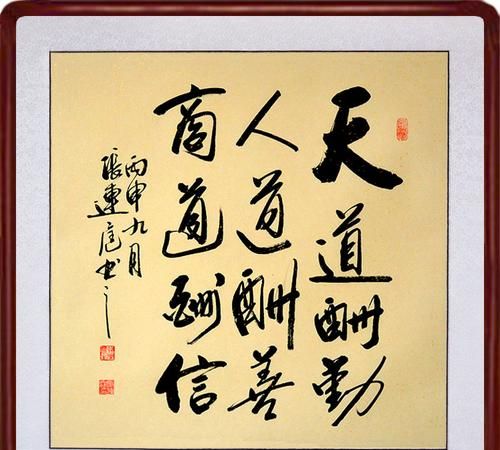 天道酬勤
人道酬善
商道酬信
丙申九月
張連庭书之